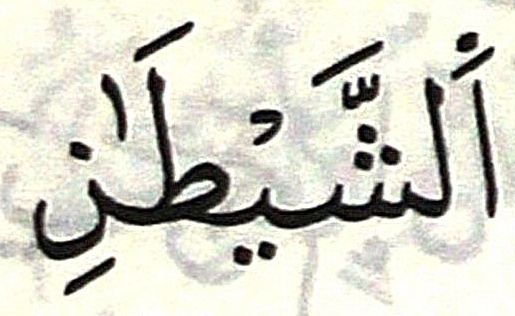 اَ۬لشَّيْطَٰنِ